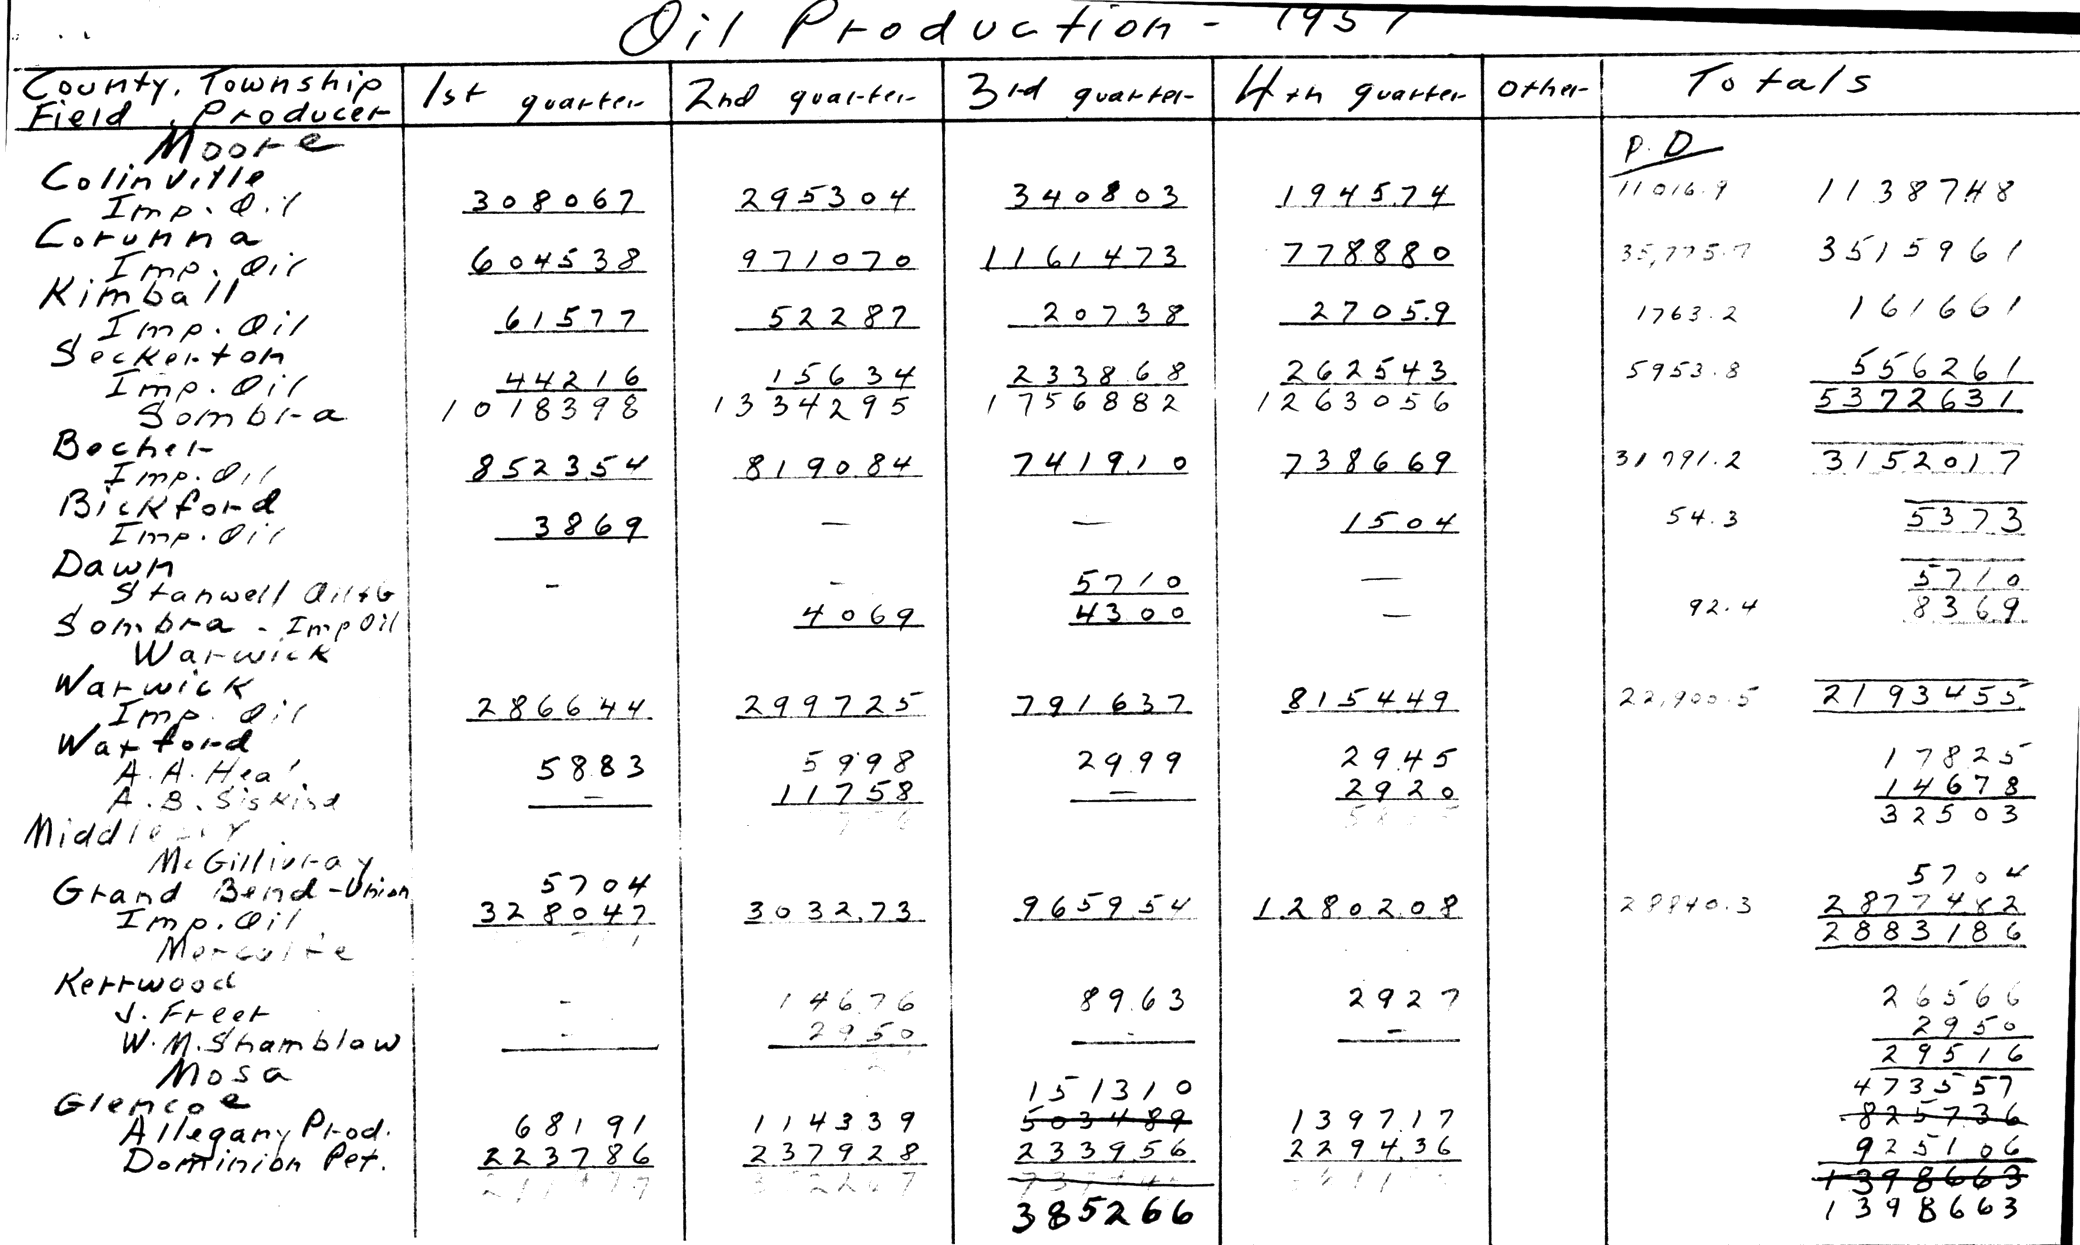 Oil Production - 1957
County, Township 1st quarter 2nd quarter 3rd quarter 4th quarter Other Totals
Field, Producer
Moore P.D
Colinville
Imp. Oil 308067 295304 340803 194574 11016.9 1138748
Corunna
Imp. Oil 604538 971070 1161473 778880 35,775.7 3515961
Kimball
Imp. Oil 61577 52287 20738 27059 1763.2 161661
Seckerton
Imp. Oil 44216 15634 233868 262543 5953.8 556261
Sombra 1018398 1334295 1756882 1263056 5372631
Becher
Imp. Oil 852354 819084 741910 738669 31791.2 3152017
Bickford
Imp. Oil 3869 — — 1504 54.3 5373
Dawn
Stanwell Oil & G - - 5710 — 5710
Sombra - Imp Oil 4069 4300 — 92.4 8369
Warwick
Warwick
Imp. Oil 286644 299725 791637 815449 22,900.5 2193455
Watford
A. A. Heal 5883 5998 2999 2945 17825
A. B. Siskind — 11758 — 2920 14678
32503
Middlesex
McGillivray
Grand Bend - Union 5704 5704
Imp. Oil 328047 303273 965954 1280208 28840.3 2877482
Metcalfe 2883186
Kerrwood
J. Freer - 14676 8963 2927 26566
W. M. Shamblaw - 2950 - - 2950
29516
Mosa
Glencoe 151310 473557
Allegany Prod. 68191 114339 503489 139717 825736
Dominion Pet. 223786 237928 233956 229436 925106
1398663
385266 1398663